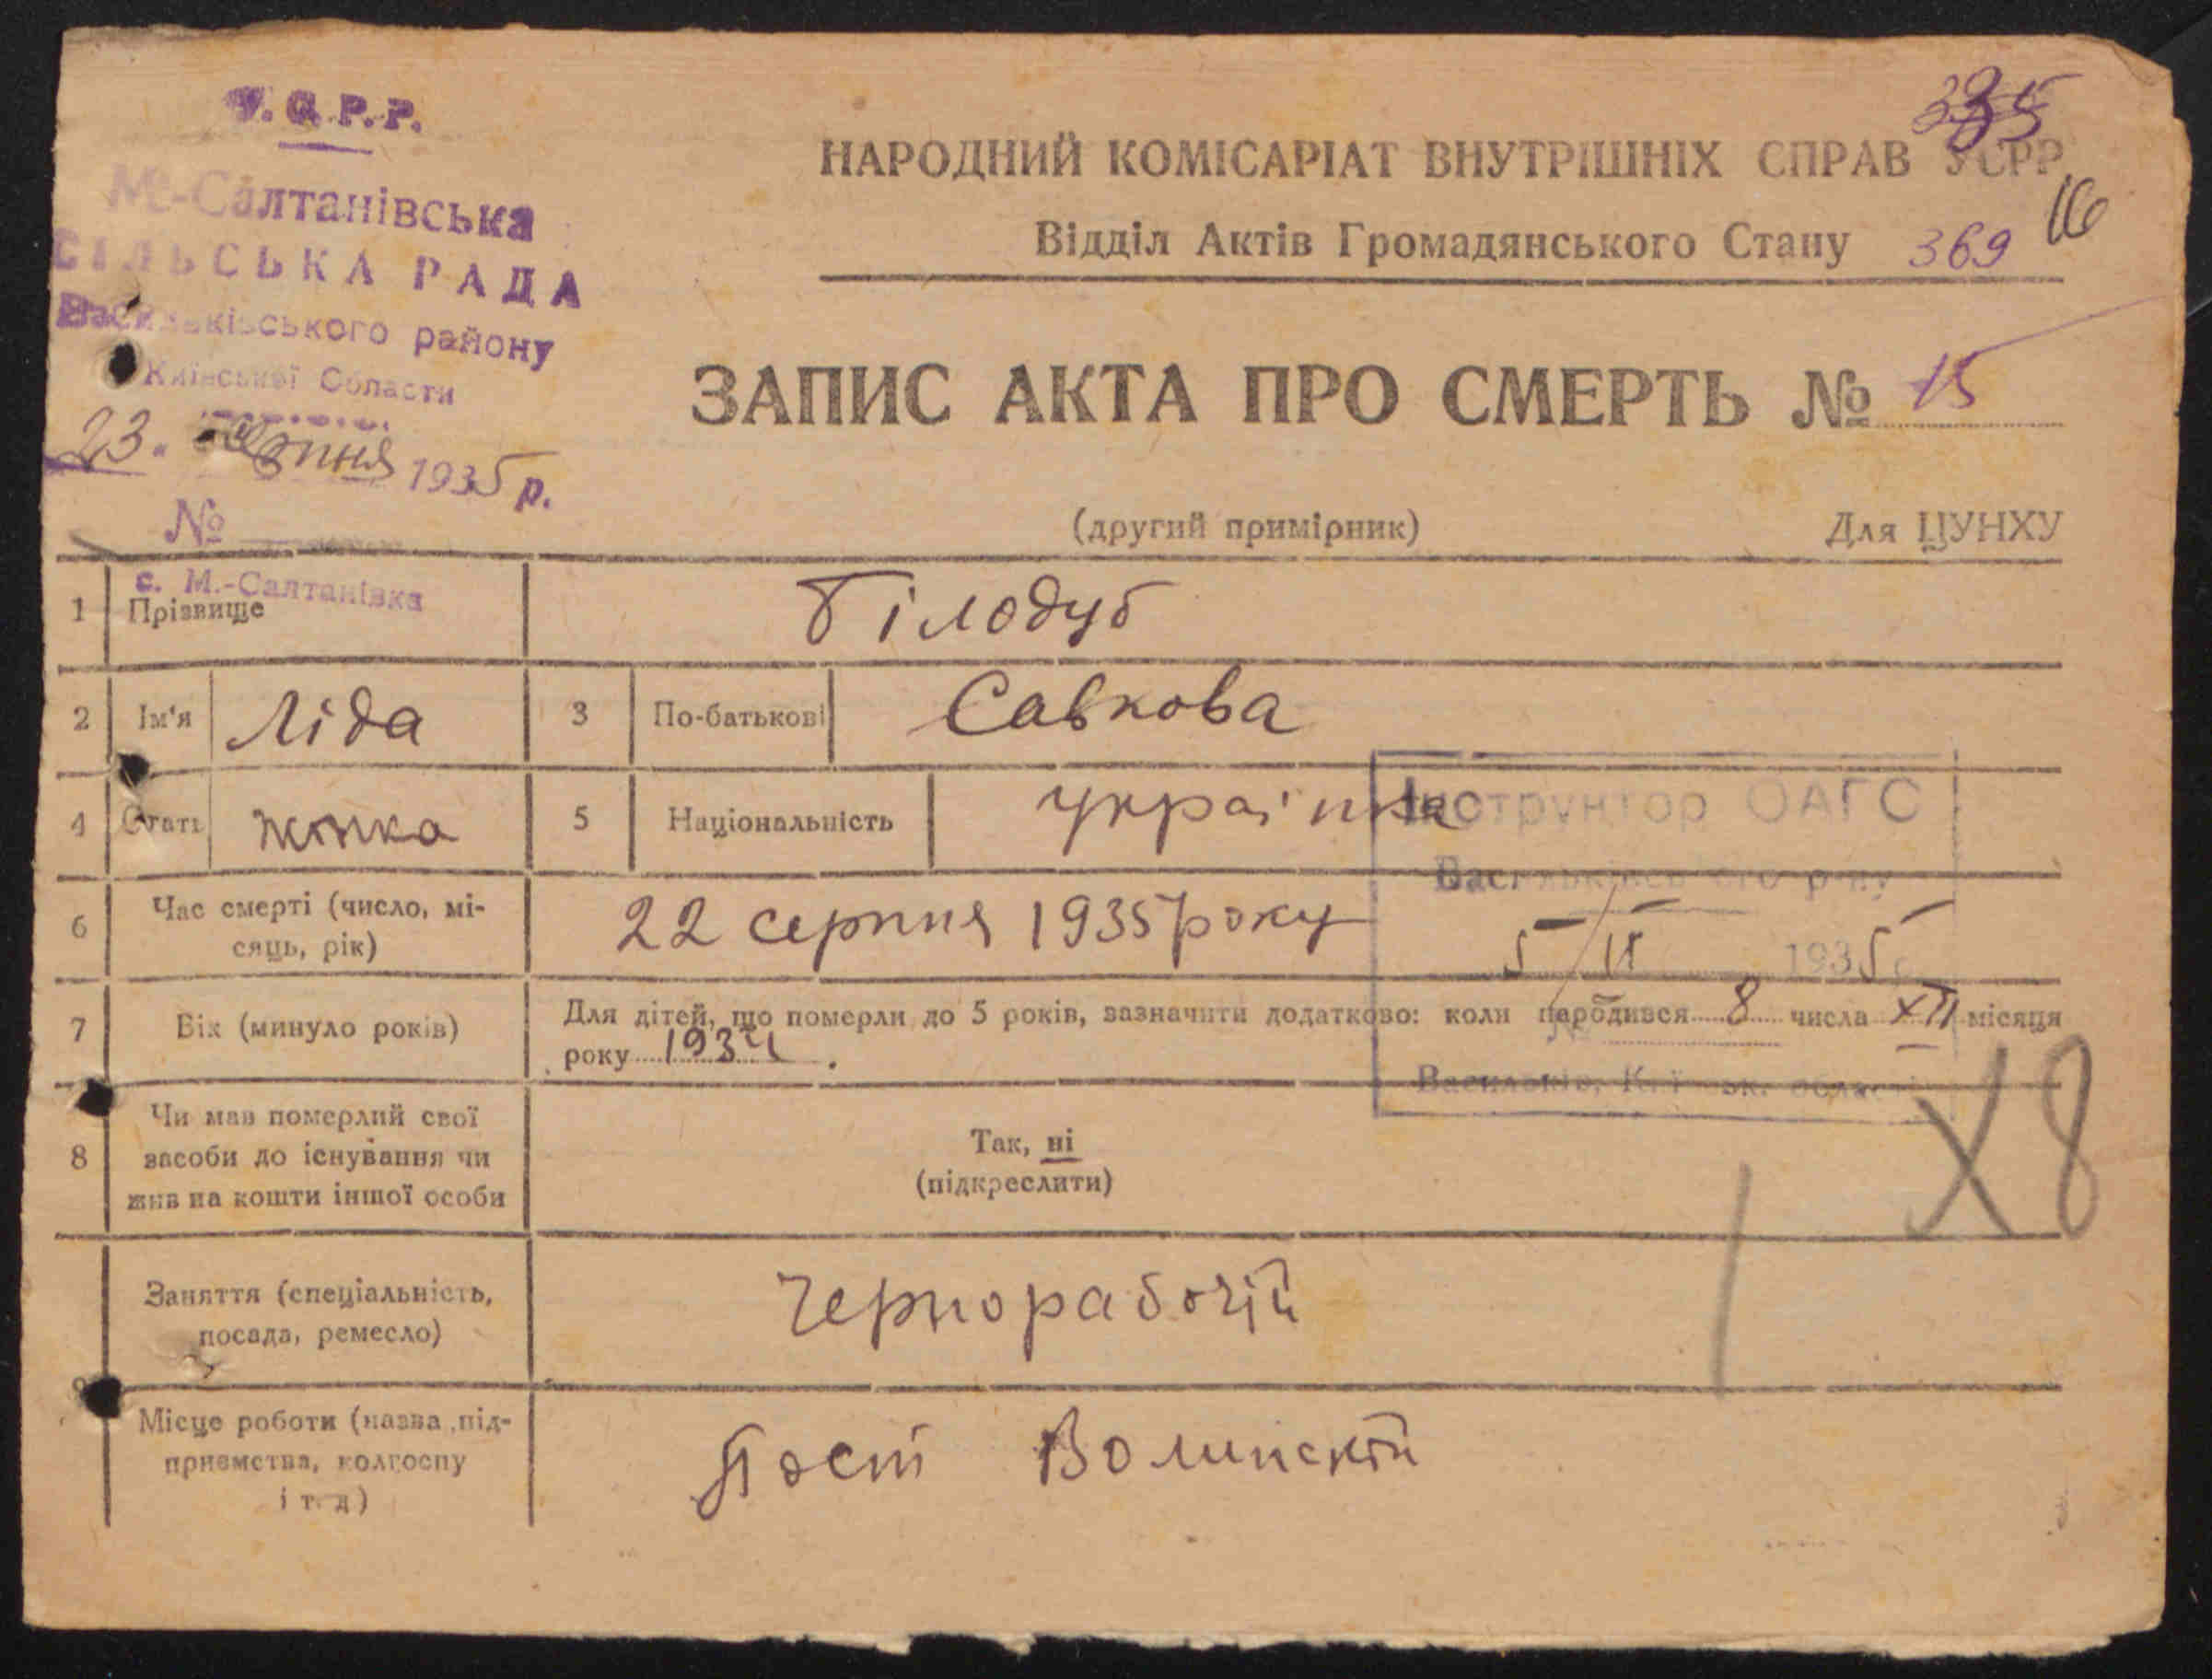 У.С.Р.Р.
М.-Салтанівська
СІЛЬСЬКА РАДА
Васильківського району
Київської Області
23. серпня 1935 р.
№
с. М.-Салтанівка
335
НАРОДНИЙ КОМІСАРІАТ ВНУТРІШНІХ СПРАВ УСРР
Відділ Актів Громадянського Стану 369 16
ЗАПИС АКТА ПРО СМЕРТЬ № 15
(другий примірник) Для ЦУНХУ
1 Прізвище Білодуб
2 Ім'я Ліда 3 По-батькові Савкова
4 Стать жінка 5 Національність українка
Інструктор ОАГС
Васильківського р-ну
6 Час смерті (число, мі-
сяць, рік) 22 серпня 1935 року
5/ІХ 1935
7 Вік (минуло років) Для дітей, що померли до 5 років, зазначити додатково: коли народився 8 числа XII місяця
року 1934.
№
Васильків, Київськ. області
8 Чи мав померлий свої
засоби до існування чи
жив на кошти іншої особи
Так, ні
(підкреслити)
X8
Заняття (спеціальність,
посада, ремесло) Чернорабочій
9
Місце роботи (назва під-
приємства, колгоспу
і т. д) Пост Волинскій